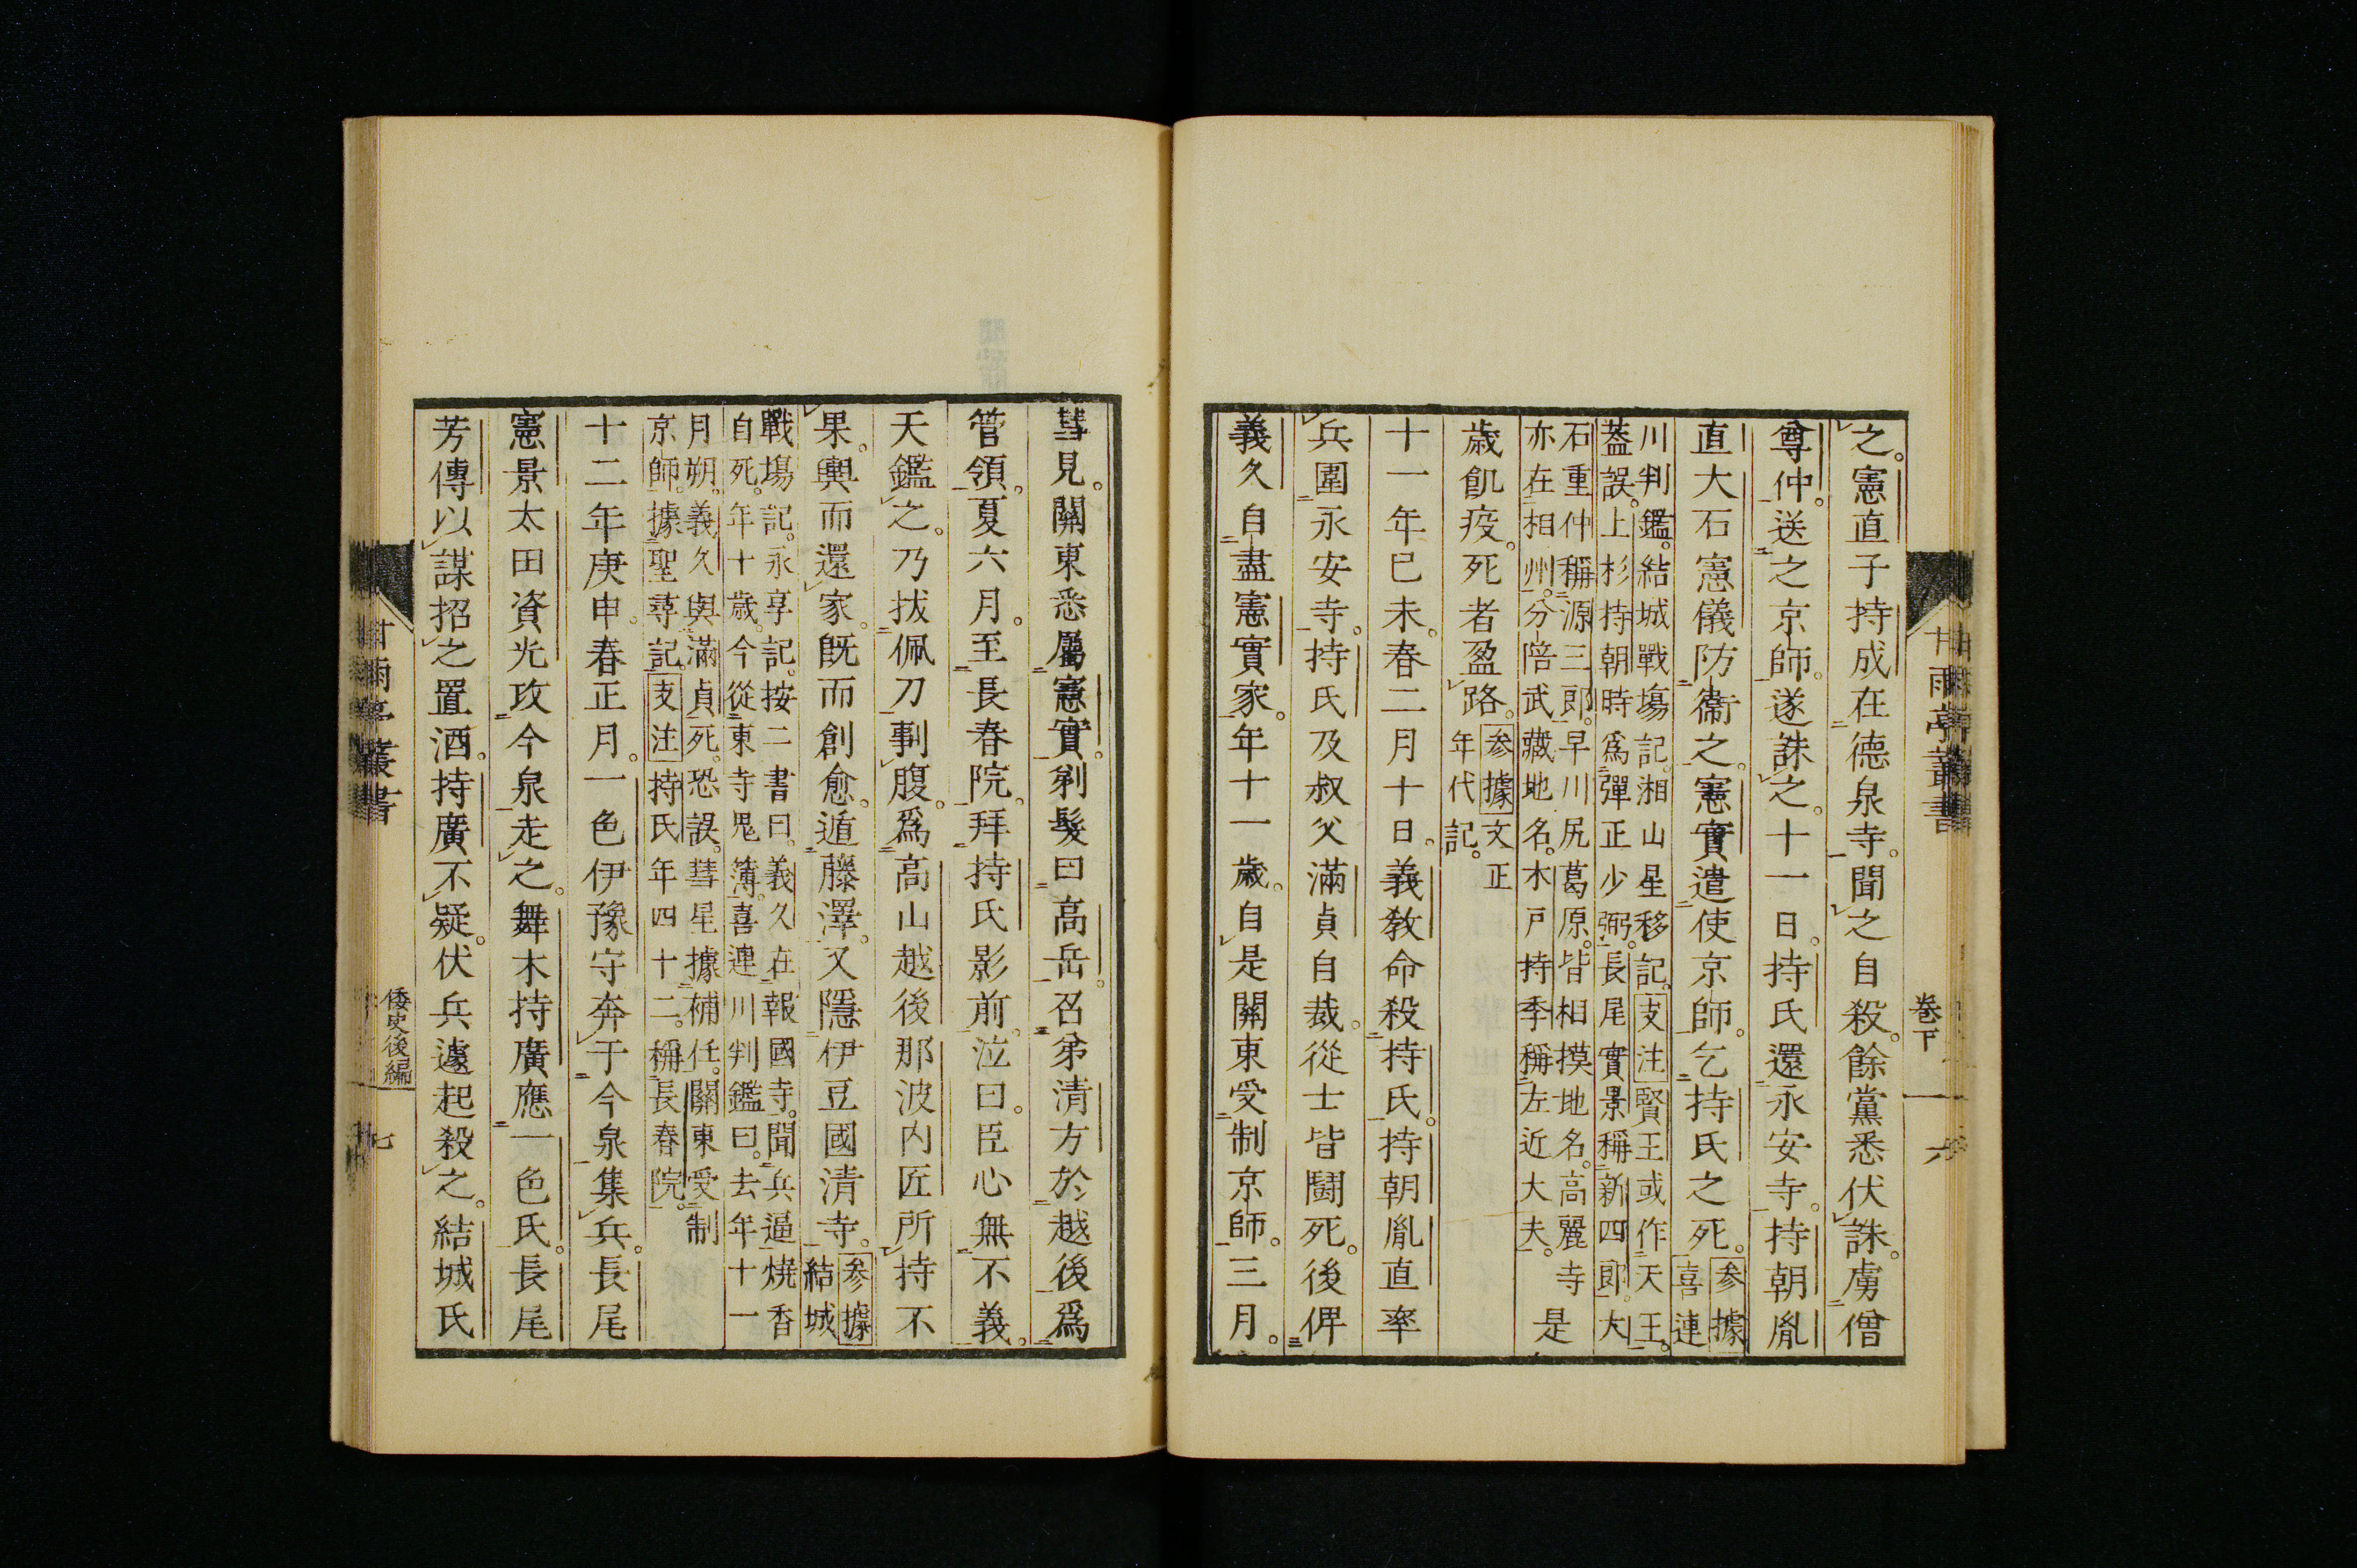 之。憲直子持成在德泉寺。聞之自殺。餘黨悉伏誅。虜僧
尊仲。送之京師。遂誅之。十一日。持氏還永安寺。持朝胤
直大石憲儀防衞之。憲實遣使京師。乞持氏之死。參據
喜連
川判鑑。結城戰場記。湘山星移記。支注賢王或作天王。
蓋誤。上杉持朝時爲彈正少弼。長尾實景稱新四郎。大
石重仲稱源三郎。早川尻葛原。皆相摸地名。高麗寺
亦在相州。分陪武藏地名。木戸持季稱左近大夫。
是
歳飢疫。死者盈路。參據文正
年代記。
十一年巳未。春二月十日。義敎命殺持氏。持朝胤直率
兵圍永安寺。持氏及叔父滿貞自裁。從士皆鬪死。後俾
義久自盡憲實家。年十一歳。自是關東受制京師。三月。
甘雨亭叢書
卷下
六
彗見。關東悉屬憲實。剃髮曰高岳。召弟清方於越後爲
管領。夏六月。至長春院。拜持氏影前。泣曰。臣心無不義。
天鑑之。乃拔佩刀剚腹。爲高山越後那波内匠所持不
果。輿而還家。既而創愈。遁藤澤。又隱伊豆國清寺。參據
結城
戰塲記。永享記。按二書曰。義久在報國寺。聞兵逼燒香
自死。年十歳。今從東寺鬼簿。喜連川判鑑曰。去年十一
月朔。義久與滿貞死。恐誤。彗星據補任。關東受制
京師。據聖尋記。支注持氏年四十二。稱長春院。
十二年庚申。春正月。一色伊豫守奔于今泉集兵。長尾
憲景太田資光攻今泉走之。舞木持廣應一色氏。長尾
芳傳以謀招之置酒。持廣不疑。伏兵遽起殺之。結城氏
甘雨亭叢書
倭史後編
七